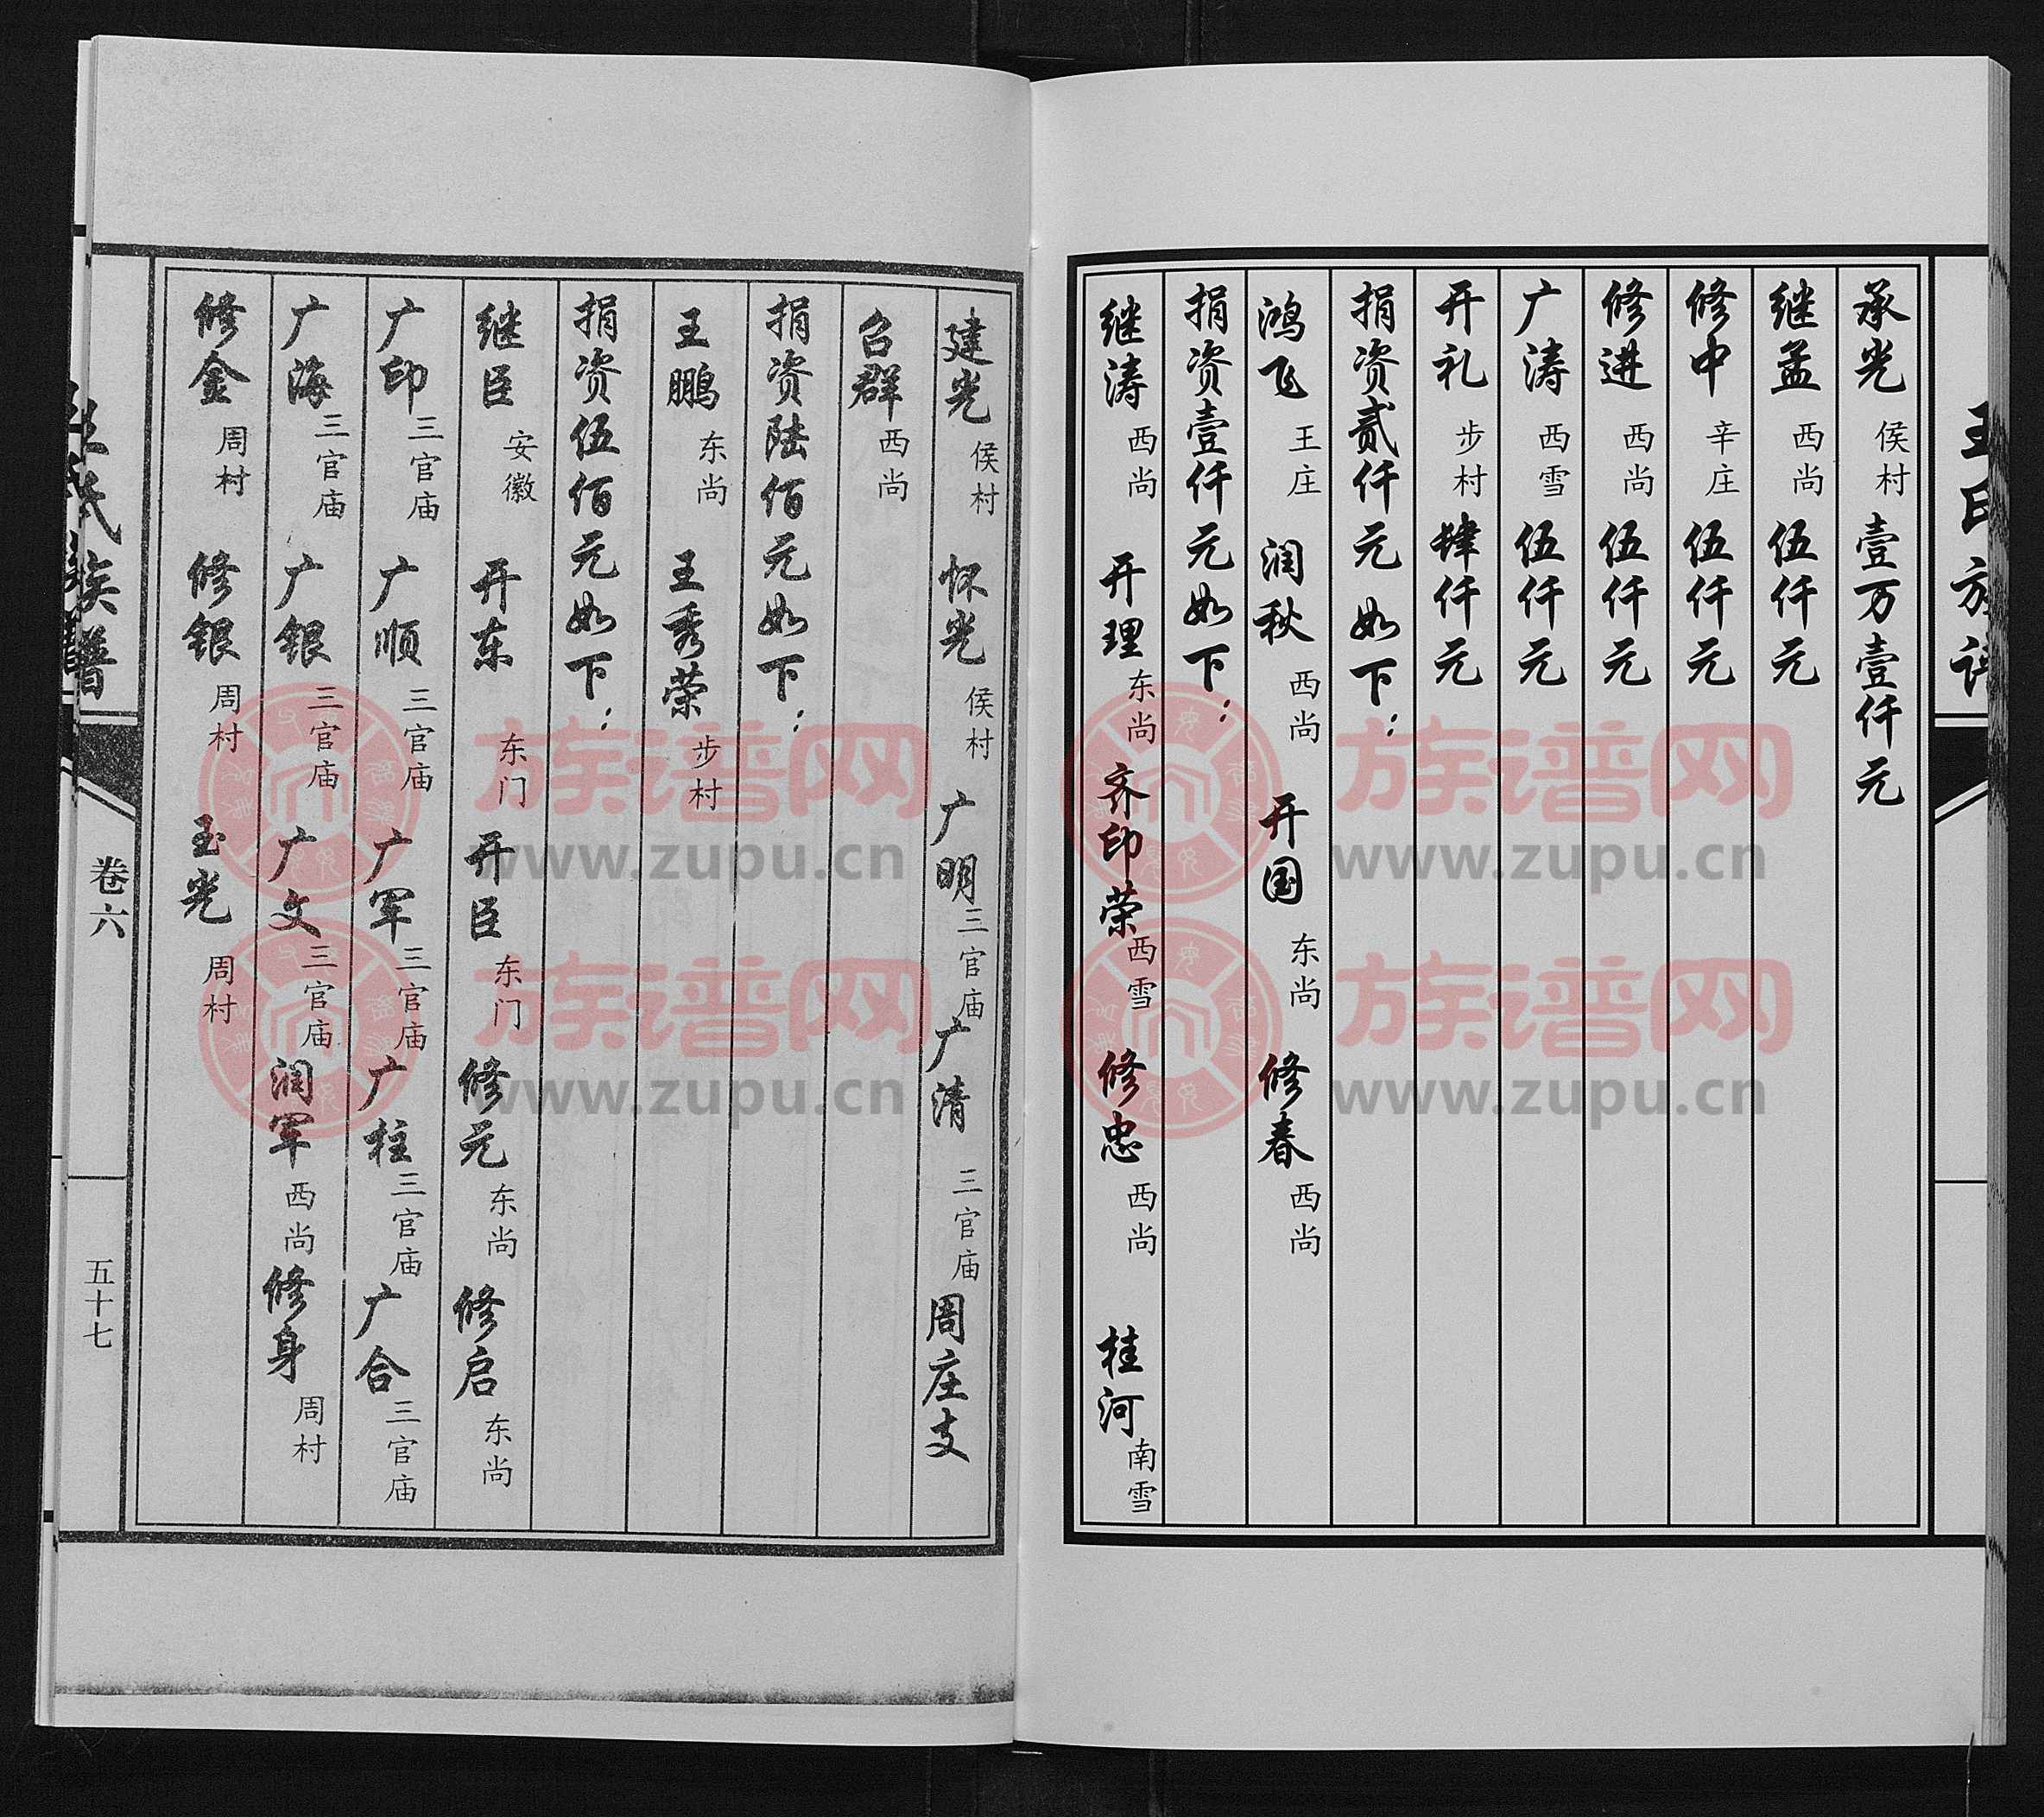 王氏族谱
承光 侯村 壹万壹仟元
继孟 西尚 伍仟元
修中 辛庄 伍仟元
修进 西尚 伍仟元
广涛 西雪 伍仟元
开礼 步村 肆仟元
捐资贰仟元如下：
鸿飞 王庄 润秋 西尚 开国 东尚 修春 西尚
捐资壹仟元如下：
继涛 西尚 开理 东尚 齐印荣 西雪 修忠 西尚 桂河 南雪
建光 侯村 怀光 侯村 广明 三官庙 广清 三官庙 周庄支
召群 西尚
捐资陆佰元如下：
王鹏 东尚 王秀荣 步村
捐资伍佰元如下：
继臣 安徽 开东 东门 开臣 东门 修元 东尚 修启 东尚
广印 三官庙 广顺 三官庙 广军 三官庙 广柱 三官庙 广合 三官庙
广海 三官庙 广银 三官庙 广文 三官庙 润军 西尚 修身 周村
修金 周村 修银 周村 玉光 周村
王氏族谱
卷六
五十七
族谱网
www.zupu.cn
族谱网
www.zupu.cn
族谱网
www.zupu.cn
族谱网
www.zupu.cn